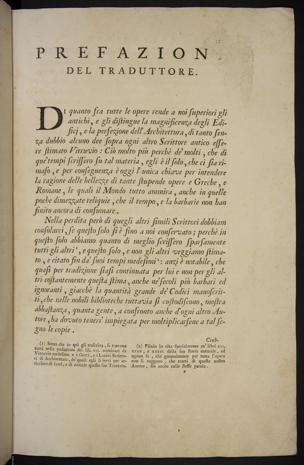 PREFAZION
DEL TRADUTTORE.
Di quanto fra tutte le opere rende a noi superiori gli
antichi, e gli distingue la magnificenza degli Edi-
ficj, e la perfezione dell'Architettura, di tanto sen-
za dubbio alcuno dee sopra ogni altro Scrittore antico esse-
re stimato Vitruvio: Ciò molto più perchè de' molti, che di
que' tempi scrissero su tal materia, egli è il solo, che ci sia ri-
maso, e per conseguenza è oggi l'unica chiave per intendere
la ragione delle bellezze di tante stupende opere e Greche, e
Romane, le quali il Mondo tutto ammira, anche in quelle
poche dimezzate reliquie, che il tempo, e la barbarie non han
finito ancora di consumare.
Nella perdita però di quegli altri simili Scrittori dobbiam
consolarci, se questo solo si è fino a noi conservato; perchè in
questo solo abbiamo quanto di meglio scrissero sparsamente
tutti gli altri, e questo solo, e non gli altri veggiamo stima-
to, e citato fin da' suoi tempi medesimi: anzi è notabile, che
quasi per tradizione siasi continuata per lui e non per gli al-
tri costantemente questa stima, anche ne' secoli più barbari ed
ignoranti, giacchè la quantità grande de' Codici manoscrit-
ti, che nelle nobili biblioteche tuttavia si custodiscono, mostra
abbastanza, quanta gente, a confronto anche d'ogni altro Au-
tore, ha dovuto tenersi impiegata per moltiplicarsene a tal se-
gno le copie.